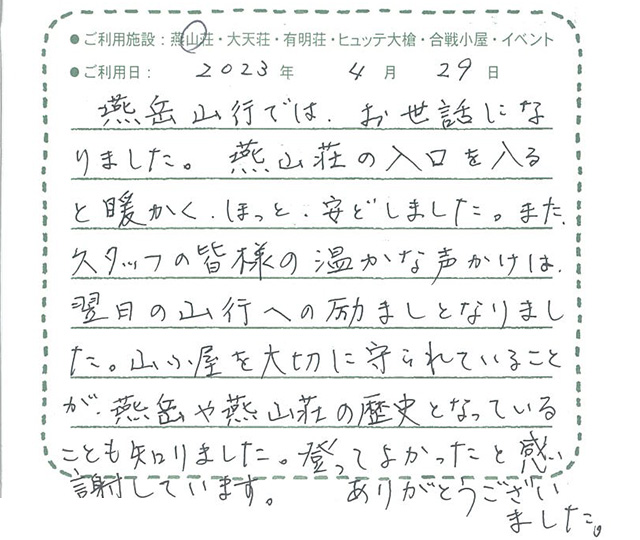 ●ご利用施設：燕山荘・大天荘・有明荘・ヒュッテ大槍・合戦小屋・イベント
●ご利用日： 2023 年 4 月 29 日
燕岳山行では、お世話にな
りました。燕山荘の入口を入る
と暖かく、ほっと、安どしました。また、
スタッフの皆様の温かな声かけは、
翌日の山行への励ましとなりまし
た。山小屋を大切に守られていること
が、燕岳や燕山荘の歴史となっている
ことも知りました。登ってよかったと感
謝しています。 ありがとうござい
ました。